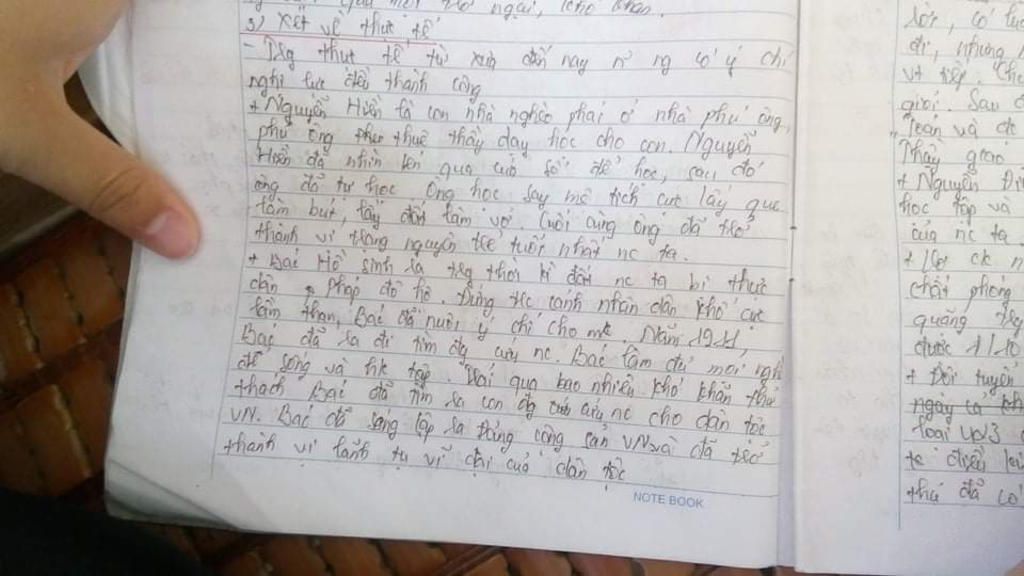 3) Xét về thực tế
- Trg thực tế từ xưa đến nay n ng có ý chí
nghị lực đều thành công
+ Nguyễn Hiền là con nhà nghèo phải ở nhà phú ông,
phú ông thuê thầy dạy học cho con. Nguyễn
Hiền đã nhìn qua cửa sổ để học, sau đó
ông đã tự học. Ông học say mê tích cực lấy que
làm bút, lấy đất làm vở. Cuối cùng ông đã trở
thành vị trạng nguyên trẻ tuổi nhất nc ta.
+ Bác Hồ sinh ra trg thời kì đất nc ta bị thực
dân Pháp đô hộ. Đứng trc cảnh nhân dân khổ cực
lầm than, Bác đã nuôi ý chí cho mk. Năm 1911,
Bác đã ra đi tìm đg cứu nc. Bác làm đủ mọi nghề
để sống và học tập. Trải qua bao nhiêu khó khăn thử
thách Bác đã tìm ra con đg cứu nc cho dân tộc
VN. Bác đã sáng lập ra Đảng cộng sản VN và đã trở
thành vị lãnh tụ vĩ đại của dân tộc
NOTE BOOK
đi, nhưng
giỏi. Sau
Toán và
Thầy giáo
+ Nguyễn
học tập và
của nc ta
chất phóng
quãng
được
+ Đội tuyển
ngày cả
loại
thứ đã có